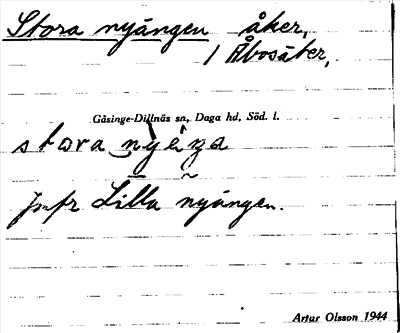 Stora nyängen åker,
/ Åbosäter,
Gåsinge-Dillnäs sn, Daga hd, Söd. l.
stora nyèŋa
Jmfr Lilla nyängen.
Artur Olsson 1944